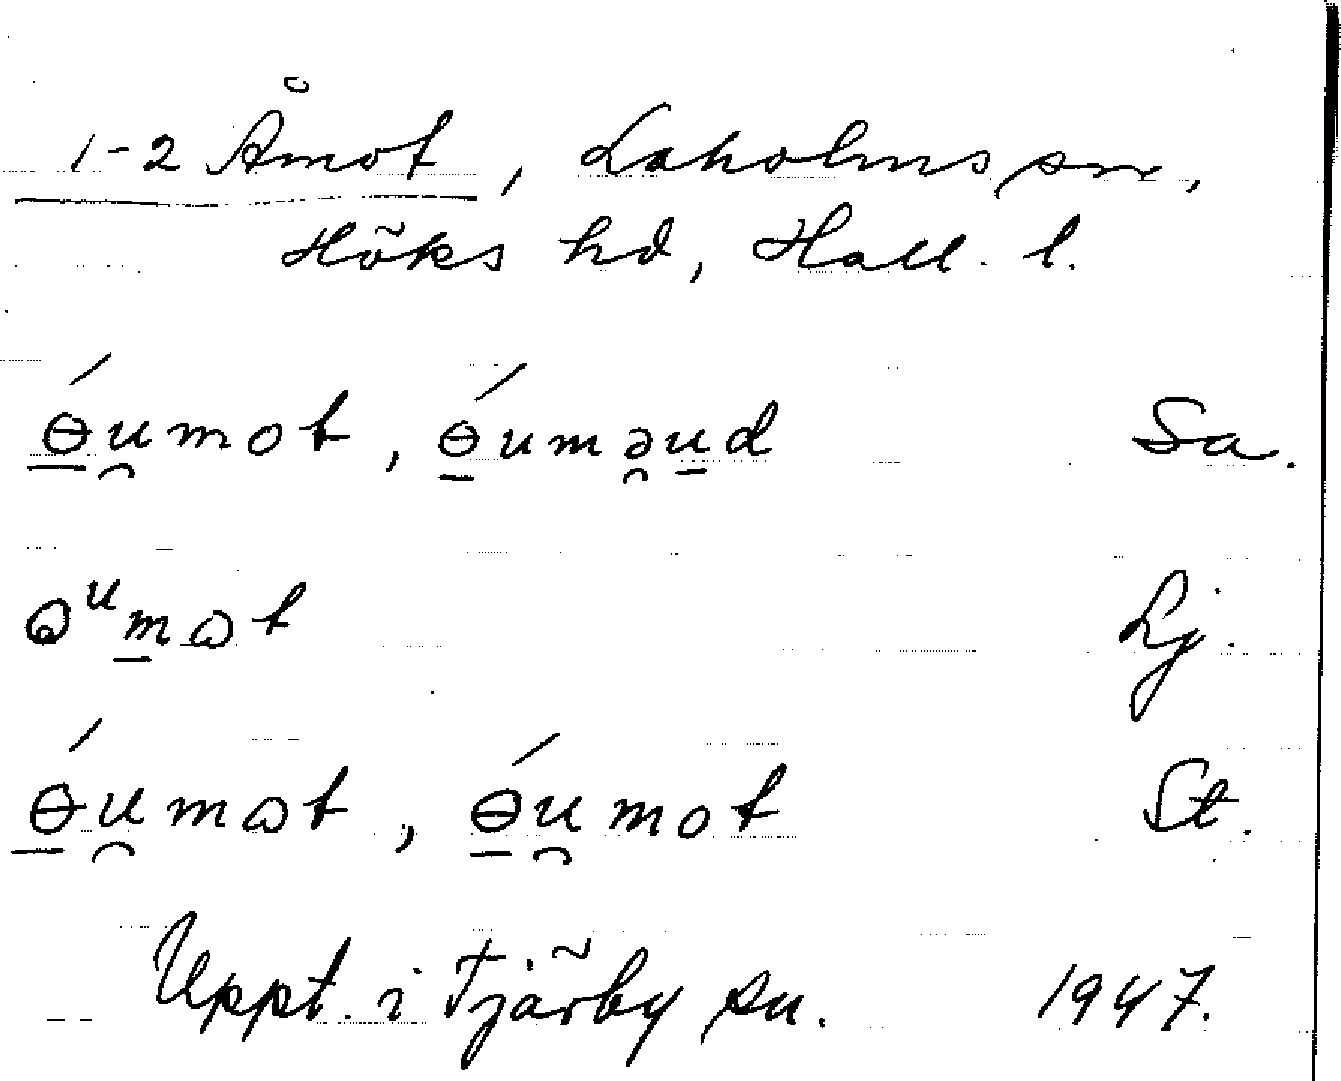 1-2 Åmot, Laholms sn,
Höks hd, Hall. l.
ɵ́u̯mot, ɵ́umə̯ud Sa.
ɷᵘmɷt Lj.
ɵ́u̯mɷt, ɵ́u̯mot St.
Uppt. i Tjärby sn. 1947.